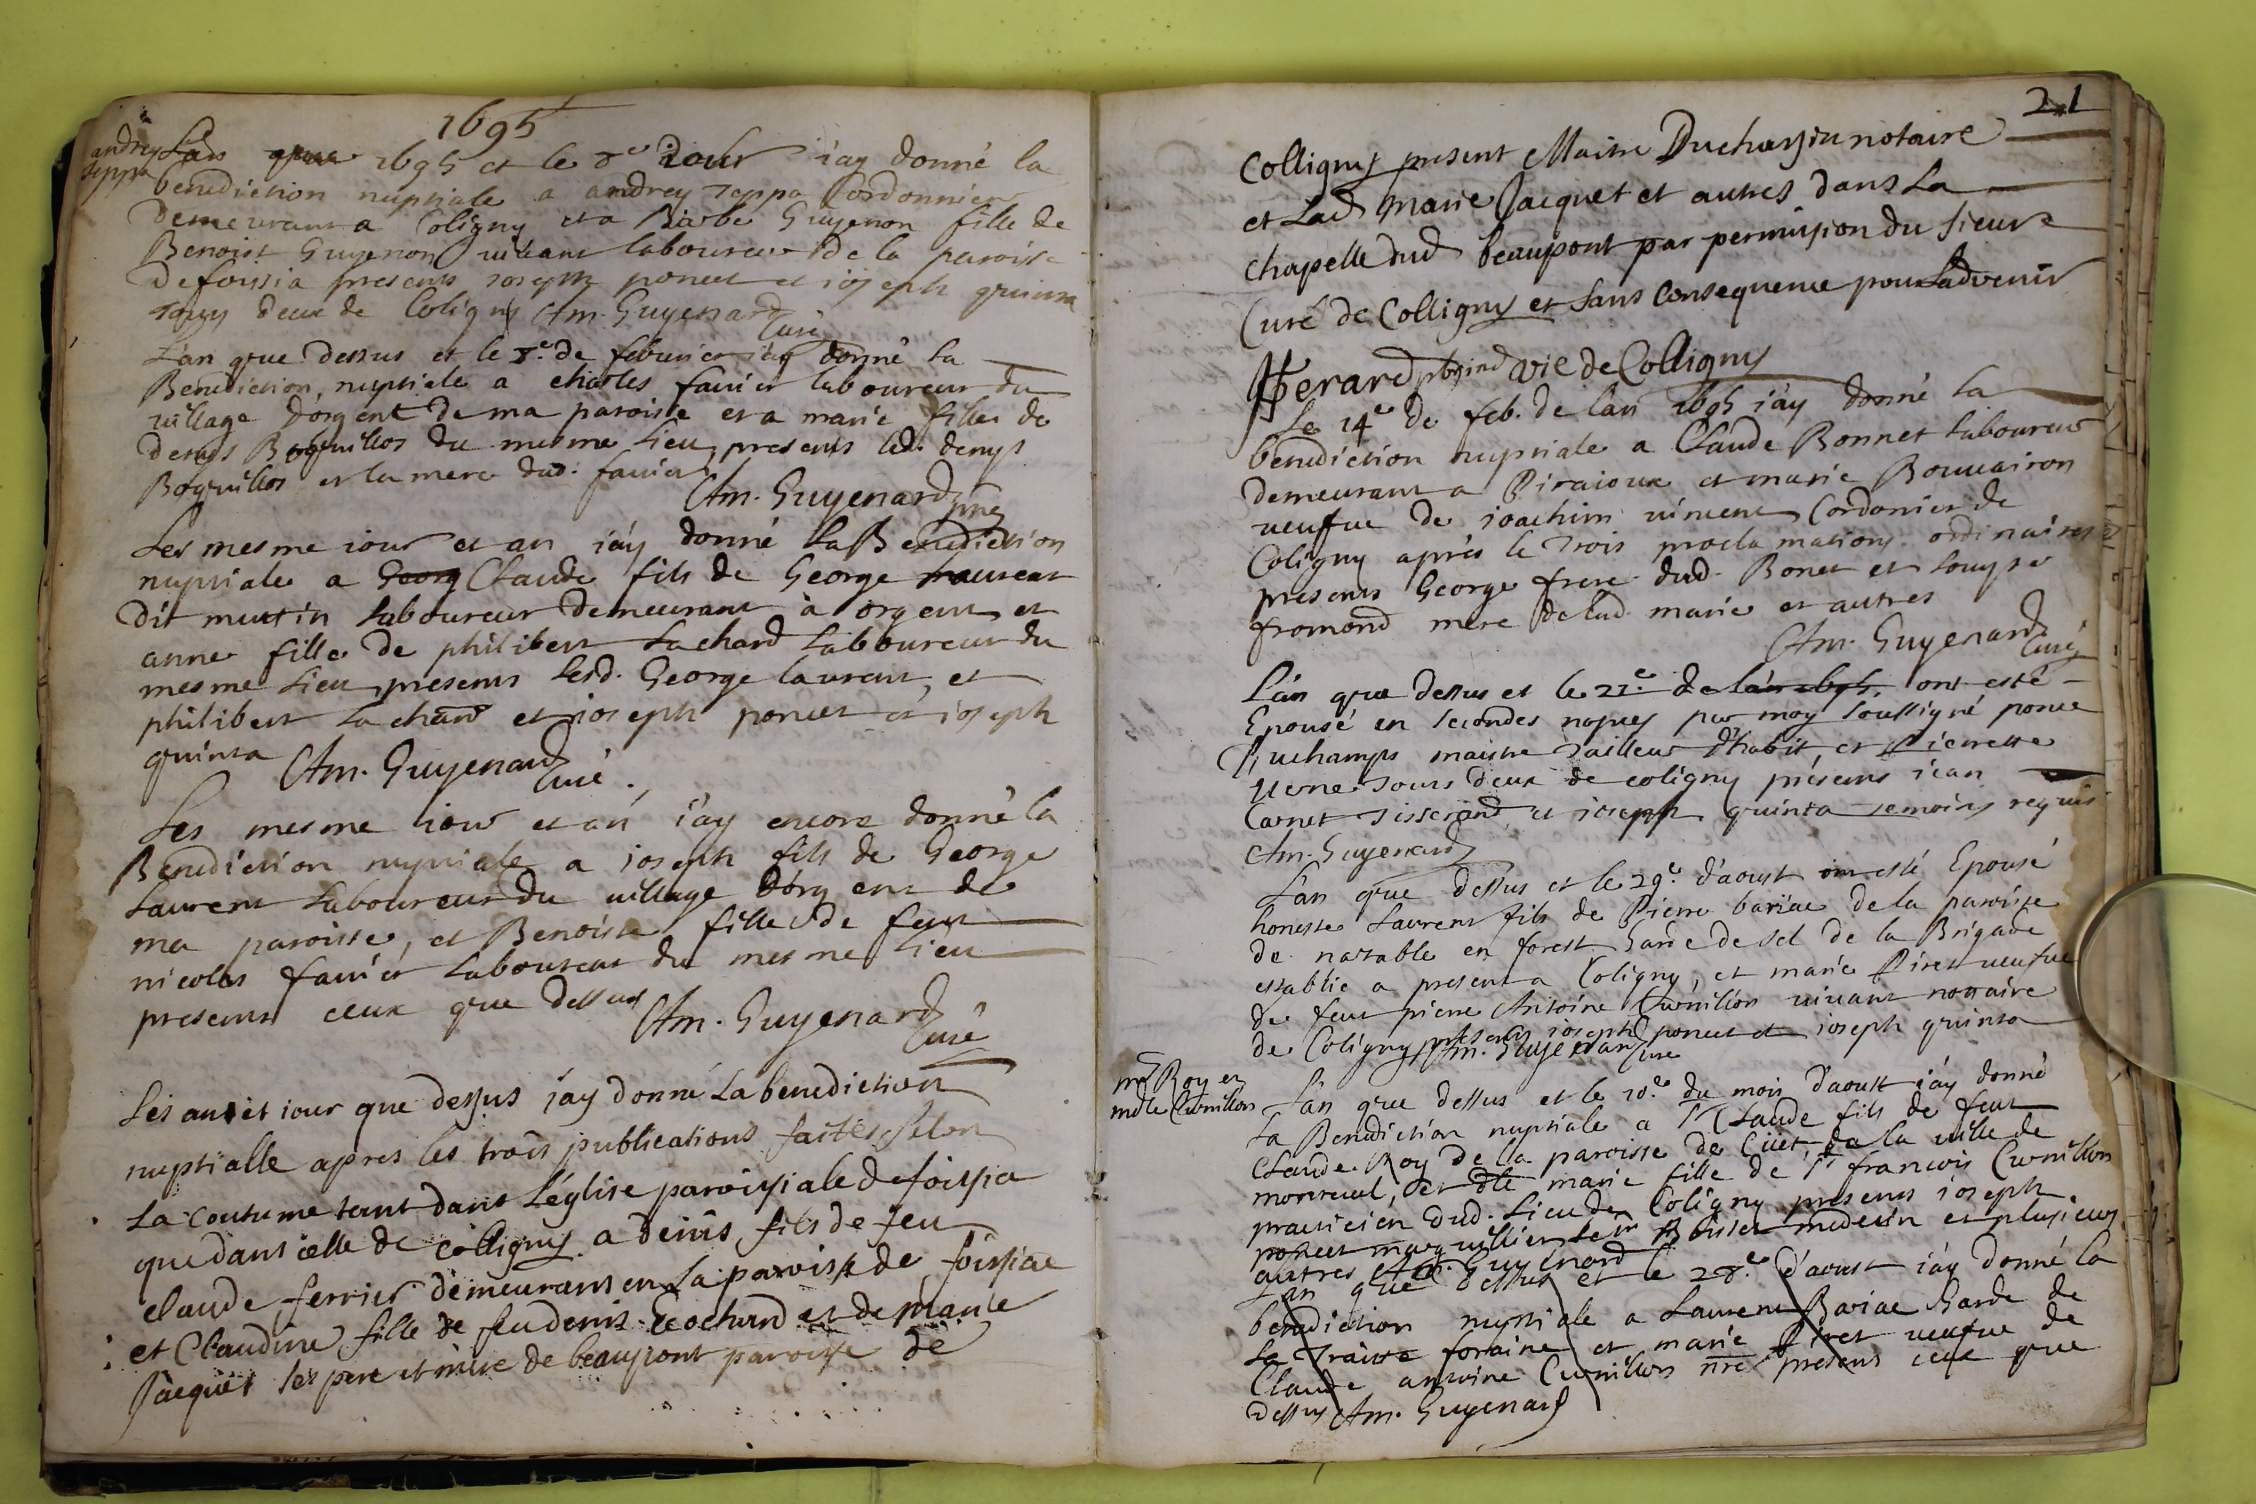 1695
andrey
Teppa
L'an 1695 et le 8e iour i'ay donné la
benediction nuptiale a andrey Teppa Cordonnier
demeurant a Coligny et a Barbe Guyenon fille de
Benoist Guyenon vivant laboureur de la paroisse
de foissia presents ioseph poncet et ioseph quinta
tous deux de Coligny Am. Guyenard
Curé
L'an que dessus et le 8e. de febvrier i'ay donné la
Benediction, nuptiale a charles favier laboureur du
village dorgent de ma paroisse et a marie fille de
denys Boquillos du mesme lieu, presents led. denys
Boquillos et la mere dud. favier
Am. Guyenard
Les mesme iour et an i'ay donné la Benediction
nuptiale a Georg Claude fils de George laurent
dit muttin laboureur demeurant à orgent et
anne fille de philibert Lachard Laboureur du
mesme lieu, presents lesd. George laurent, et
philibert Lachard et ioseph poncet et ioseph
quinta Am. Guyenard
Curé.
Les mesme iour et an i'ay encore donné la
Benediction nuptiale a ioseph fils de George
Laurent Laboureur du village dorgent de
ma paroisse, et Benoiste fille de feu
nicolas favier Laboureur du mesme lieu
presents ceux que dessus
Am. Guyenard
Curé
Les an et iour que dessus iay donné la benediction
nuptialle apres les trois publications faites selon
La coutume tant dans l'église paroissiale de foissia
que dans celle de Colligny a denis fils de feu
claude ferrier demeurant en la paroisse de foissiae
et Claudine fille de feu denis Cochard et de marie
Jacquet ses pere et mere de beaupont paroisse de
21
Colligny present Maitre notaire
et Lad marie Jacquet et autres dans La
chapelle dud beaupont par permission du sieur
Curé de Colligny et sans consequence pour Ladvenir
Herard vic de Colligny
Le 14e de feb. de lan 1695 i'ay donné la
benediction nuptiale a Claude Bonnet laboureur
demeurant a Piraioux et marie Bouvairon
veuffue de ioachim vincent Cordonier de
Coligny après le trois proclamations ordinaires
presents George frere dud. Bonet et Louyse
fromond mere de lad. marie et autres
Am. Guyenard
Curé
L'an que dessus et le 22e. de l'an 1695. ont esté
Epousé en secondes nopces par moy soussigné ponce
Puchamps maistre tailleur d'habit et Pierrette
verne tous deux de coligny présents iean
Carnet tisserand et ioseph quinta temoins requis
Am. Guyenard
L'an que dessus et le 29e. d'aoust ont esté Epousé
honeste Laurent fils de Pierre bariae de la paroisse
de natable en forest Garde de sel de la Brigade
establie a present a Coligny, et marie Piret veufue
de feu pierre Antoine Curnillon vivant nottaire
de Coligny presents ioseph poncet et ioseph quinta
Am. Guyenard Curé
mr Roy et
mdle Curnillon
L'an que dessus et le 10e. du mois d'aoust i'ay donné
la Benediction nuptiale a Sr Claude fils de feu
Claude Roy de la paroisse de Cuet, de la ville de
montreval, et dlle marie fille de Sr francois Curnillon
praticien dud. Lieu de Coligny presents ioseph
poncet marguillier le Sr Boisset medecin et plusieurs
autres Am. Guyenard
L'an que dessus et le 28e. d'aoust i'ay donné la
benediction nuptiale a Laurent Bariae Garde de
la Traitte foraine et marie Piret veufue de
Claude antoine Curnillon nre presens ceux que
dessus Am. Guyenard